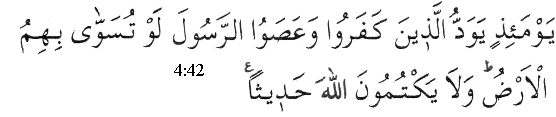 يَوْمَئِذٍ يَوَدُّ الَّذِينَ كَفَرُوا وَعَصَوُا الرَّسُولَ لَوْ تُسَوّٰى بِهِمُ
الْاَرْضُ ؕ وَلَا يَكْتُمُونَ اللّٰهَ حَدِيثًا ࣖ 4:42